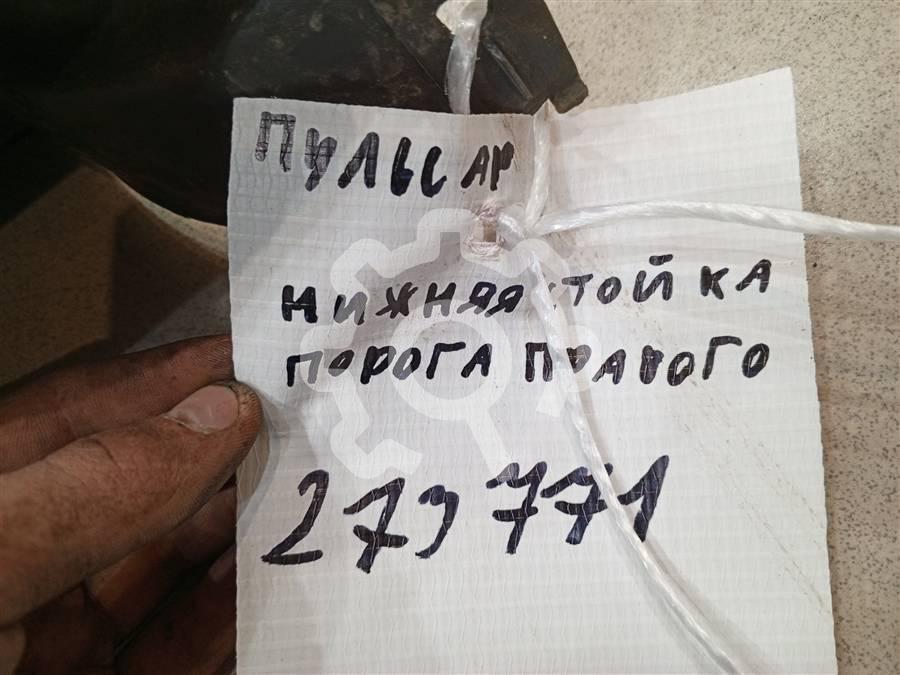 Пульсар
нижняя стойка
порога правого
279771